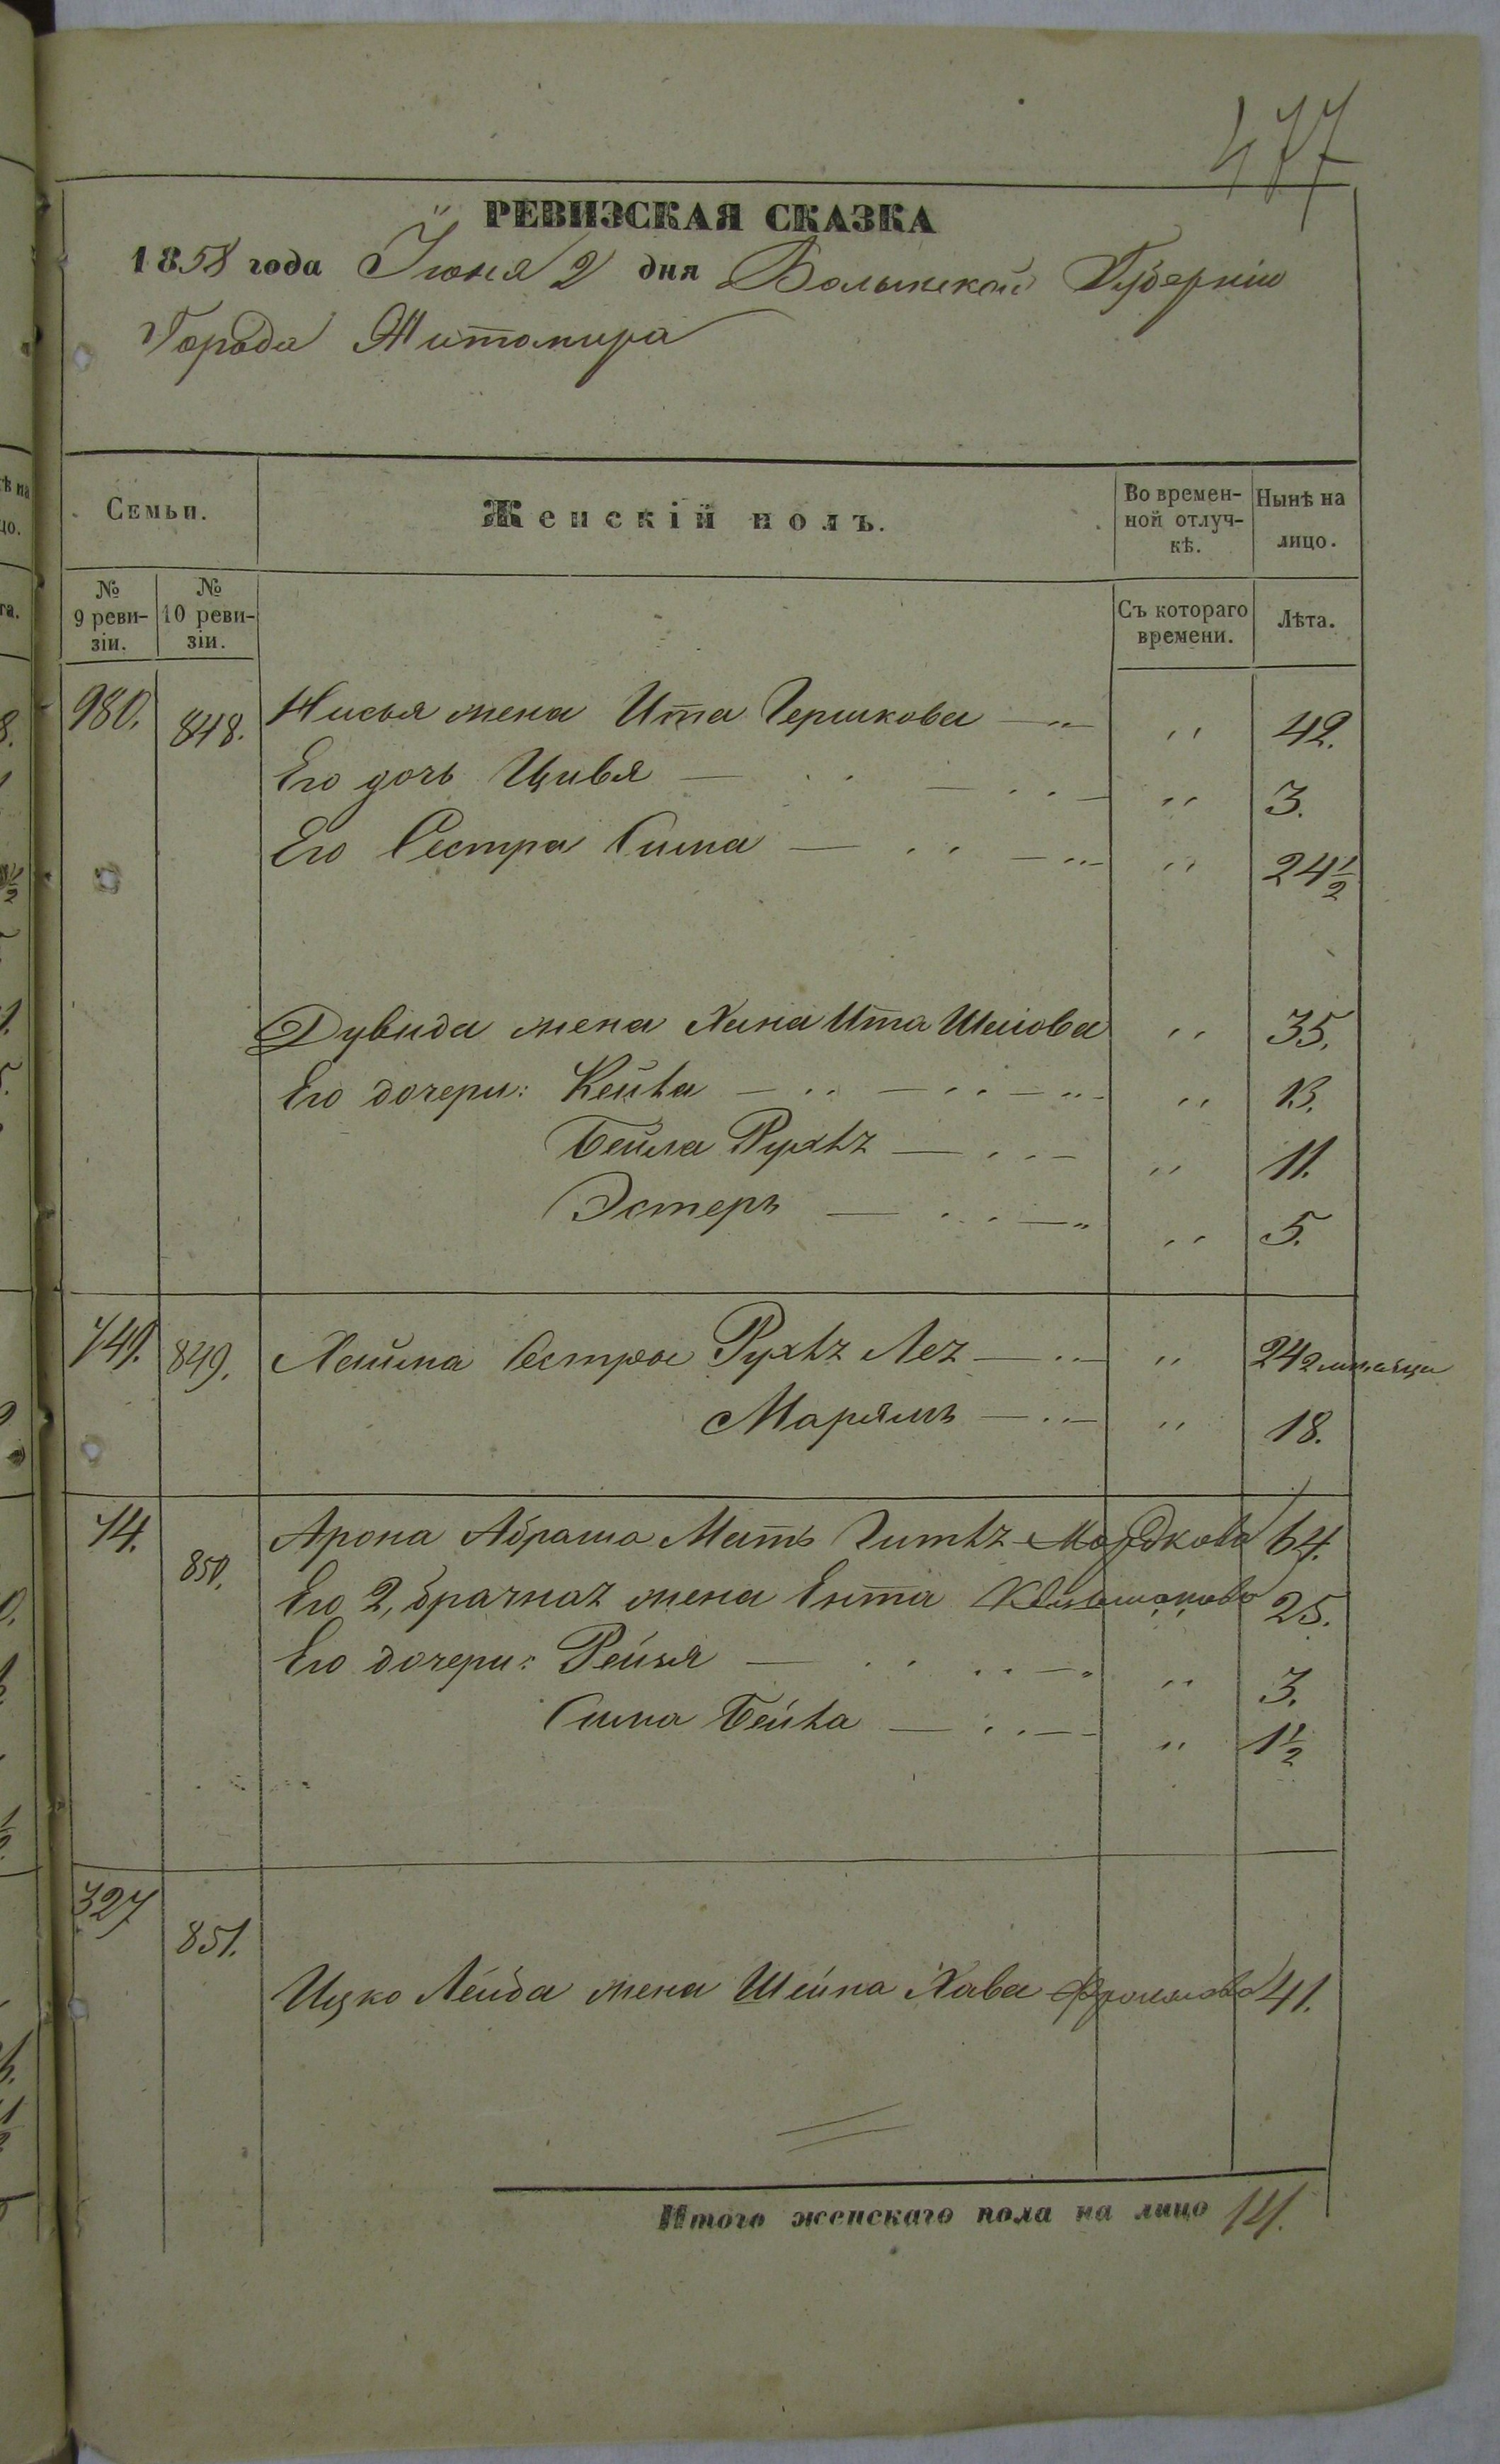 477
РЕВИЗСКАЯ СКАЗКА
1858 года Іюня 2 дня Волынской Губерніи
Города Житомира
Семьи.
Женскій полъ.
Во времен-
ной отлуч-
кѣ.
Нынѣ на
лицо.
№
9 реви-
зіи.
№
10 реви-
зіи.
Съ котораго
времени.
Лѣта.
980. 848. Нисья жена Ита Гершкова — „ „ 42.
Его дочь Цивья — „ — „ — „ 3.
Его Сестра Сима — „ — „ „ 24½
Дувида жена Хана Ита Шаіова „ 35.
Его дочери: Кейла — „ — „ — „ „ 13.
Бейла Рухля — „ — „ 11.
Эстеръ — „ — „ „ 5.
741. 849. Хаима Сестры Рухля Лея — „ — „ 24 2 мѣсяца
Марьямъ — „ — „ 18.
74. 850. Арона Абрама Мать Гитля Мордкова 64.
Его 2, брачная жена Ента 25.
Его дочери: Рейзя — „ „ — „ „ 3.
Сима Бейла — „ — „ 1½
327 851.
Ицко Лейба жена Шейна Хава Фроимова 41.
Итого женскаго пола на лицо 14.